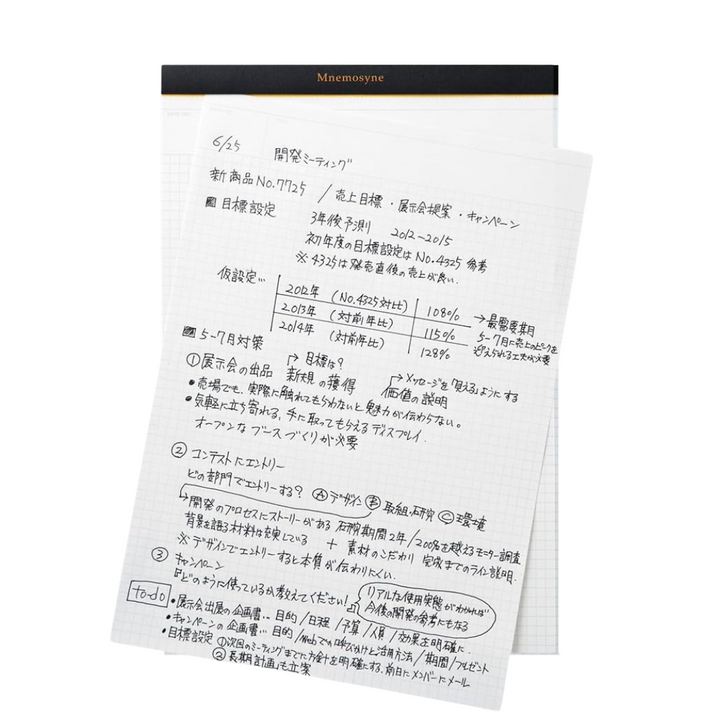 Mnemosyne
6/25 開発ミーティング
新商品No.7725 / 売上目標・展示会提案・キャンペーン
目標設定
3年後予測 2012-2015
初年度の目標設定はNo.4325参考
※4325は発売直後の売上が良い.
仮設定…
2012年 (No.4325対比) 108%
2013年 (対前年比) 115%
2014年 (対前年比) 128%
→最需要期
5-7月に売上のピークを
迎えられる工夫が必要
5-7月対策
①展示会の出品
→目標は?
新規の獲得
→メッセージを「見える」ようにする
価値の説明
•売場でも、実際に触れてもらわないと魅力が伝わらない。
•気軽に立ち寄れる、手に取ってもらえるディスプレイ.
オープンなブースづくりが必要
②コンテストにエントリー
どの部門でエントリーする? Ⓐデザイン Ⓑ取組・研究 Ⓒ環境
→開発のプロセスにストーリーがある 研究期間2年/200名を越えるモニター調査
背景を語る材料は充実している + 素材のこだわり 完成までのライン説明.
※デザインでエントリーすると本質が伝わりにくい.
③キャンペーン
どのように使っているか教えてください!
リアルな使用実態がわかれば
今後の開発の参考にもなる
to-do
•展示会出展の企画書…目的/日程/予算/人員/効果を明確に.
•キャンペーンの企画書…目的/Webでの呼びかけと活用方法/期間/プレゼント
•目標設定 ①次回のミーティングまでに方針を明確にする.前日にメンバーにメール
②長期計画も立案